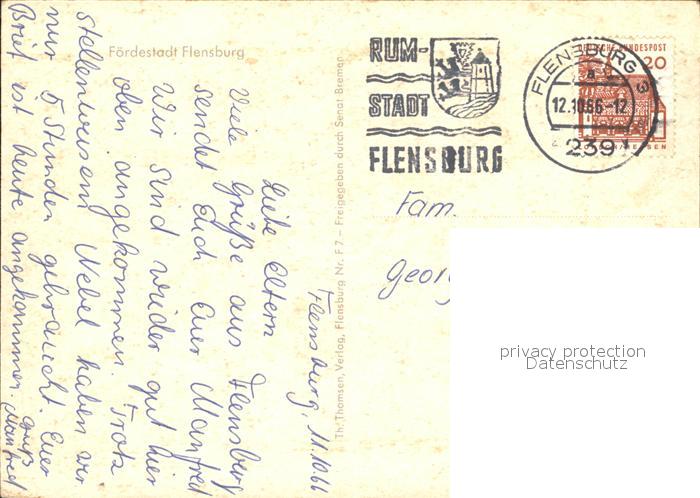 Fördestadt Flensburg
Flensburg, 11.10.66
Liebe Eltern
Viele Grüße aus Flensburg
sendet Euch Euer Manfred
Wir sind wieder gut hier
oben angekommen. Trotz
stellenweisem Nebel haben wir
nur 5 Stunden gebraucht. Euer
Brief ist heute angekommen.
Gruß
Manfred
Th. Thomsen, Verlag, Flensburg Nr. F 7 – Freigegeben durch Senat Bremen
RUM-
STADT
FLENSBURG
FLENSBURG 3
a
12.10.66.-12
239
DEUTSCHE BUNDESPOST
20
Fam.
Georg
privacy protection
Datenschutz